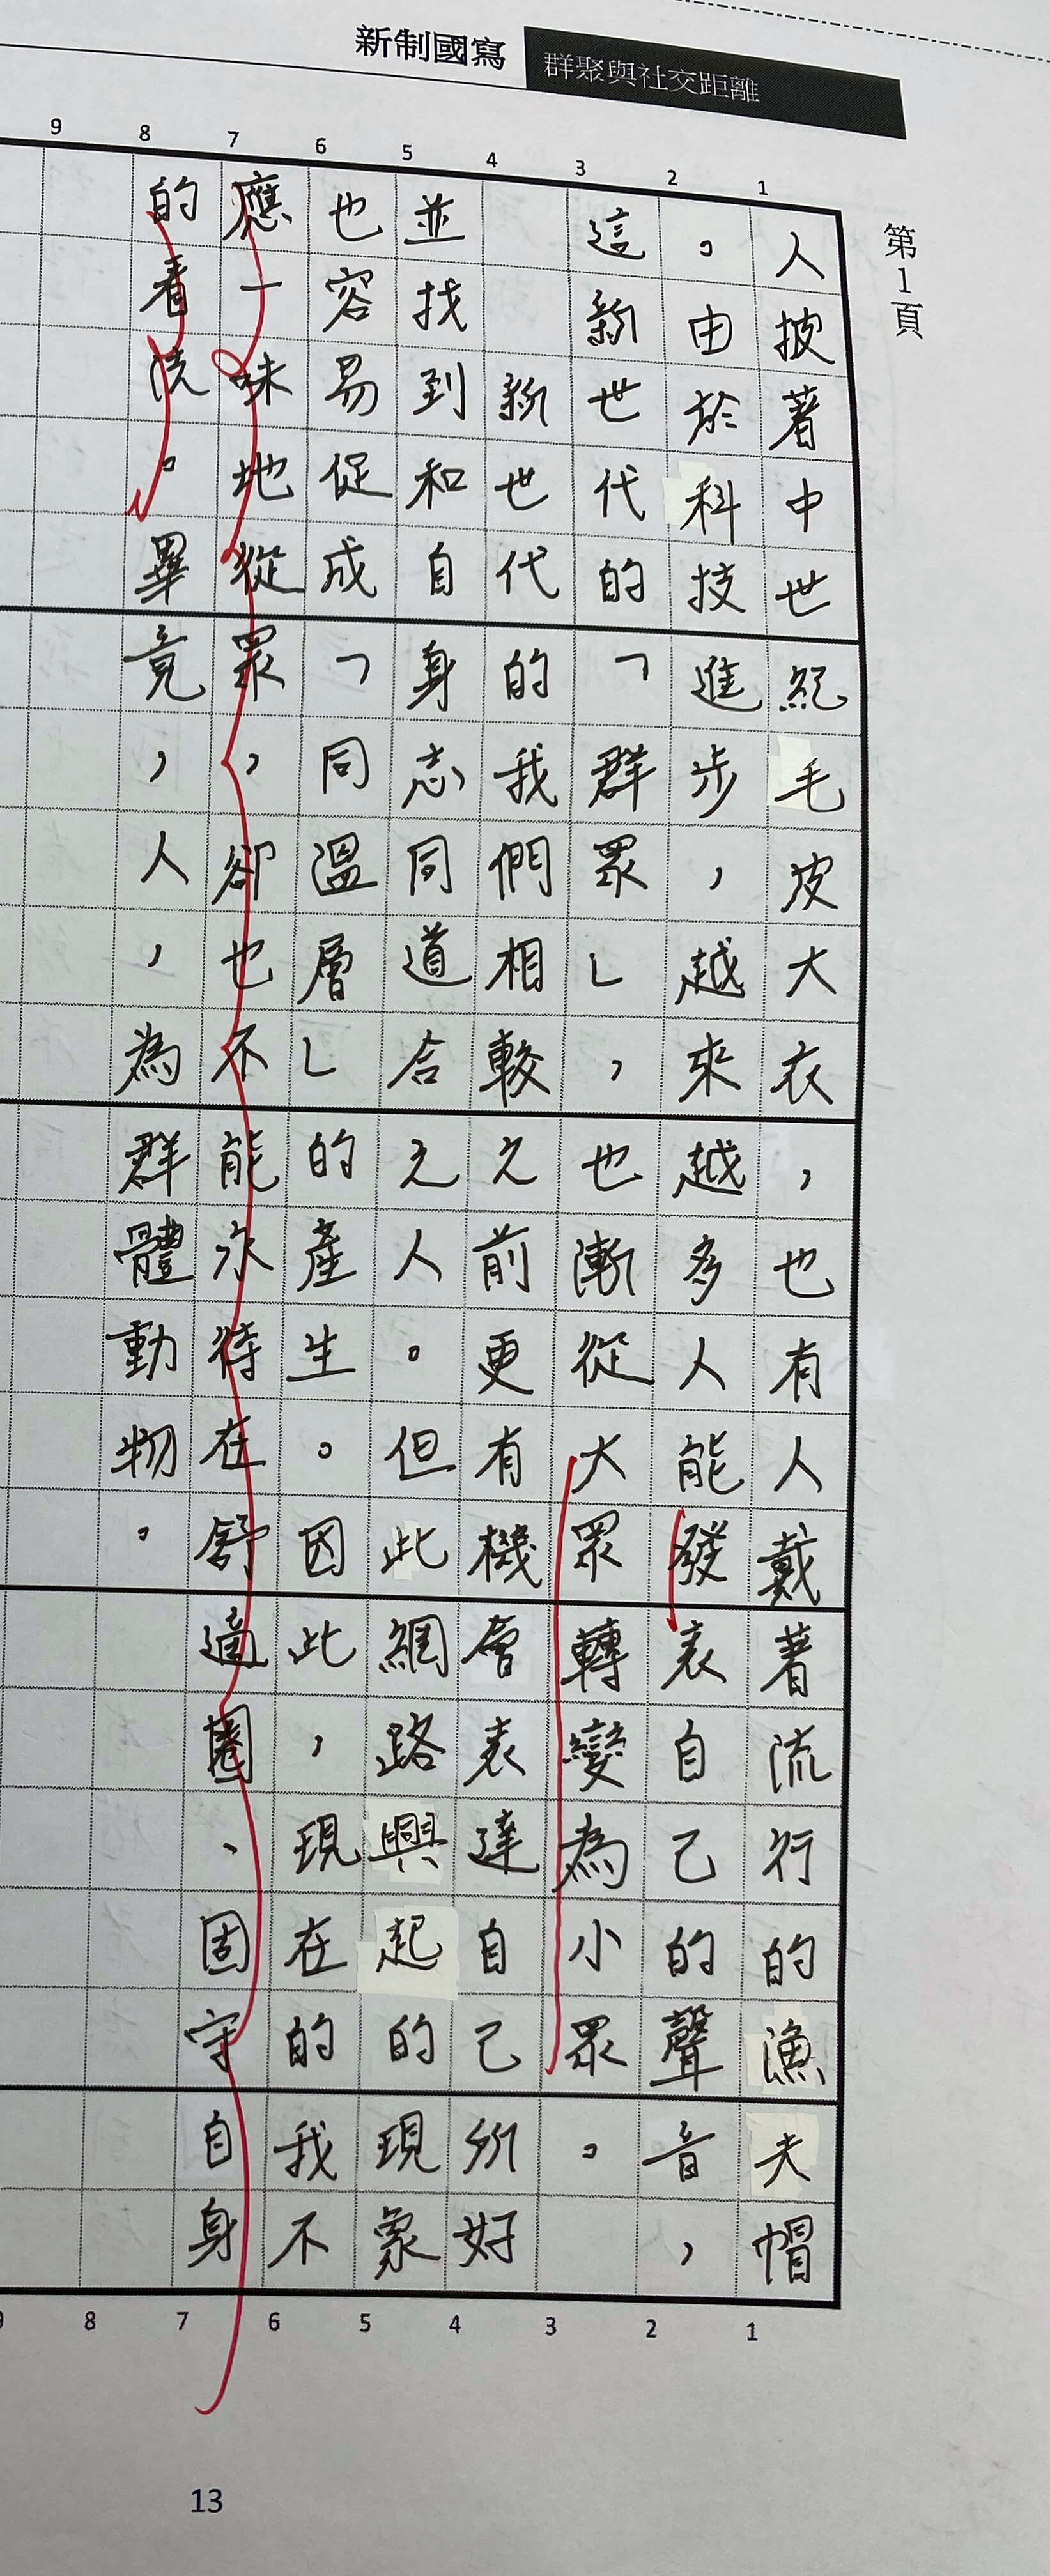 新制國寫 群聚與社交距離
第1頁
1 2 3 4 5 6 7 8 9
人披著中世紀毛皮大衣，也有人戴著流行的漁夫帽
。由於科技進步，越來越多人能發表自己的聲音，
這新世代的「群眾」，也漸從大眾轉變為小眾。
新世代的我們相較之前更有機會表達自己所好
並找到和自身志同道合之人。但此網路興起的現象
也容易促成「同溫層」的產生。因此，現在的我不
應一味地從眾，卻也不能永待在舒適圈、固守自身
的看。畢竟，人，為群體動物。
1 2 3 4 5 6 7 8
13